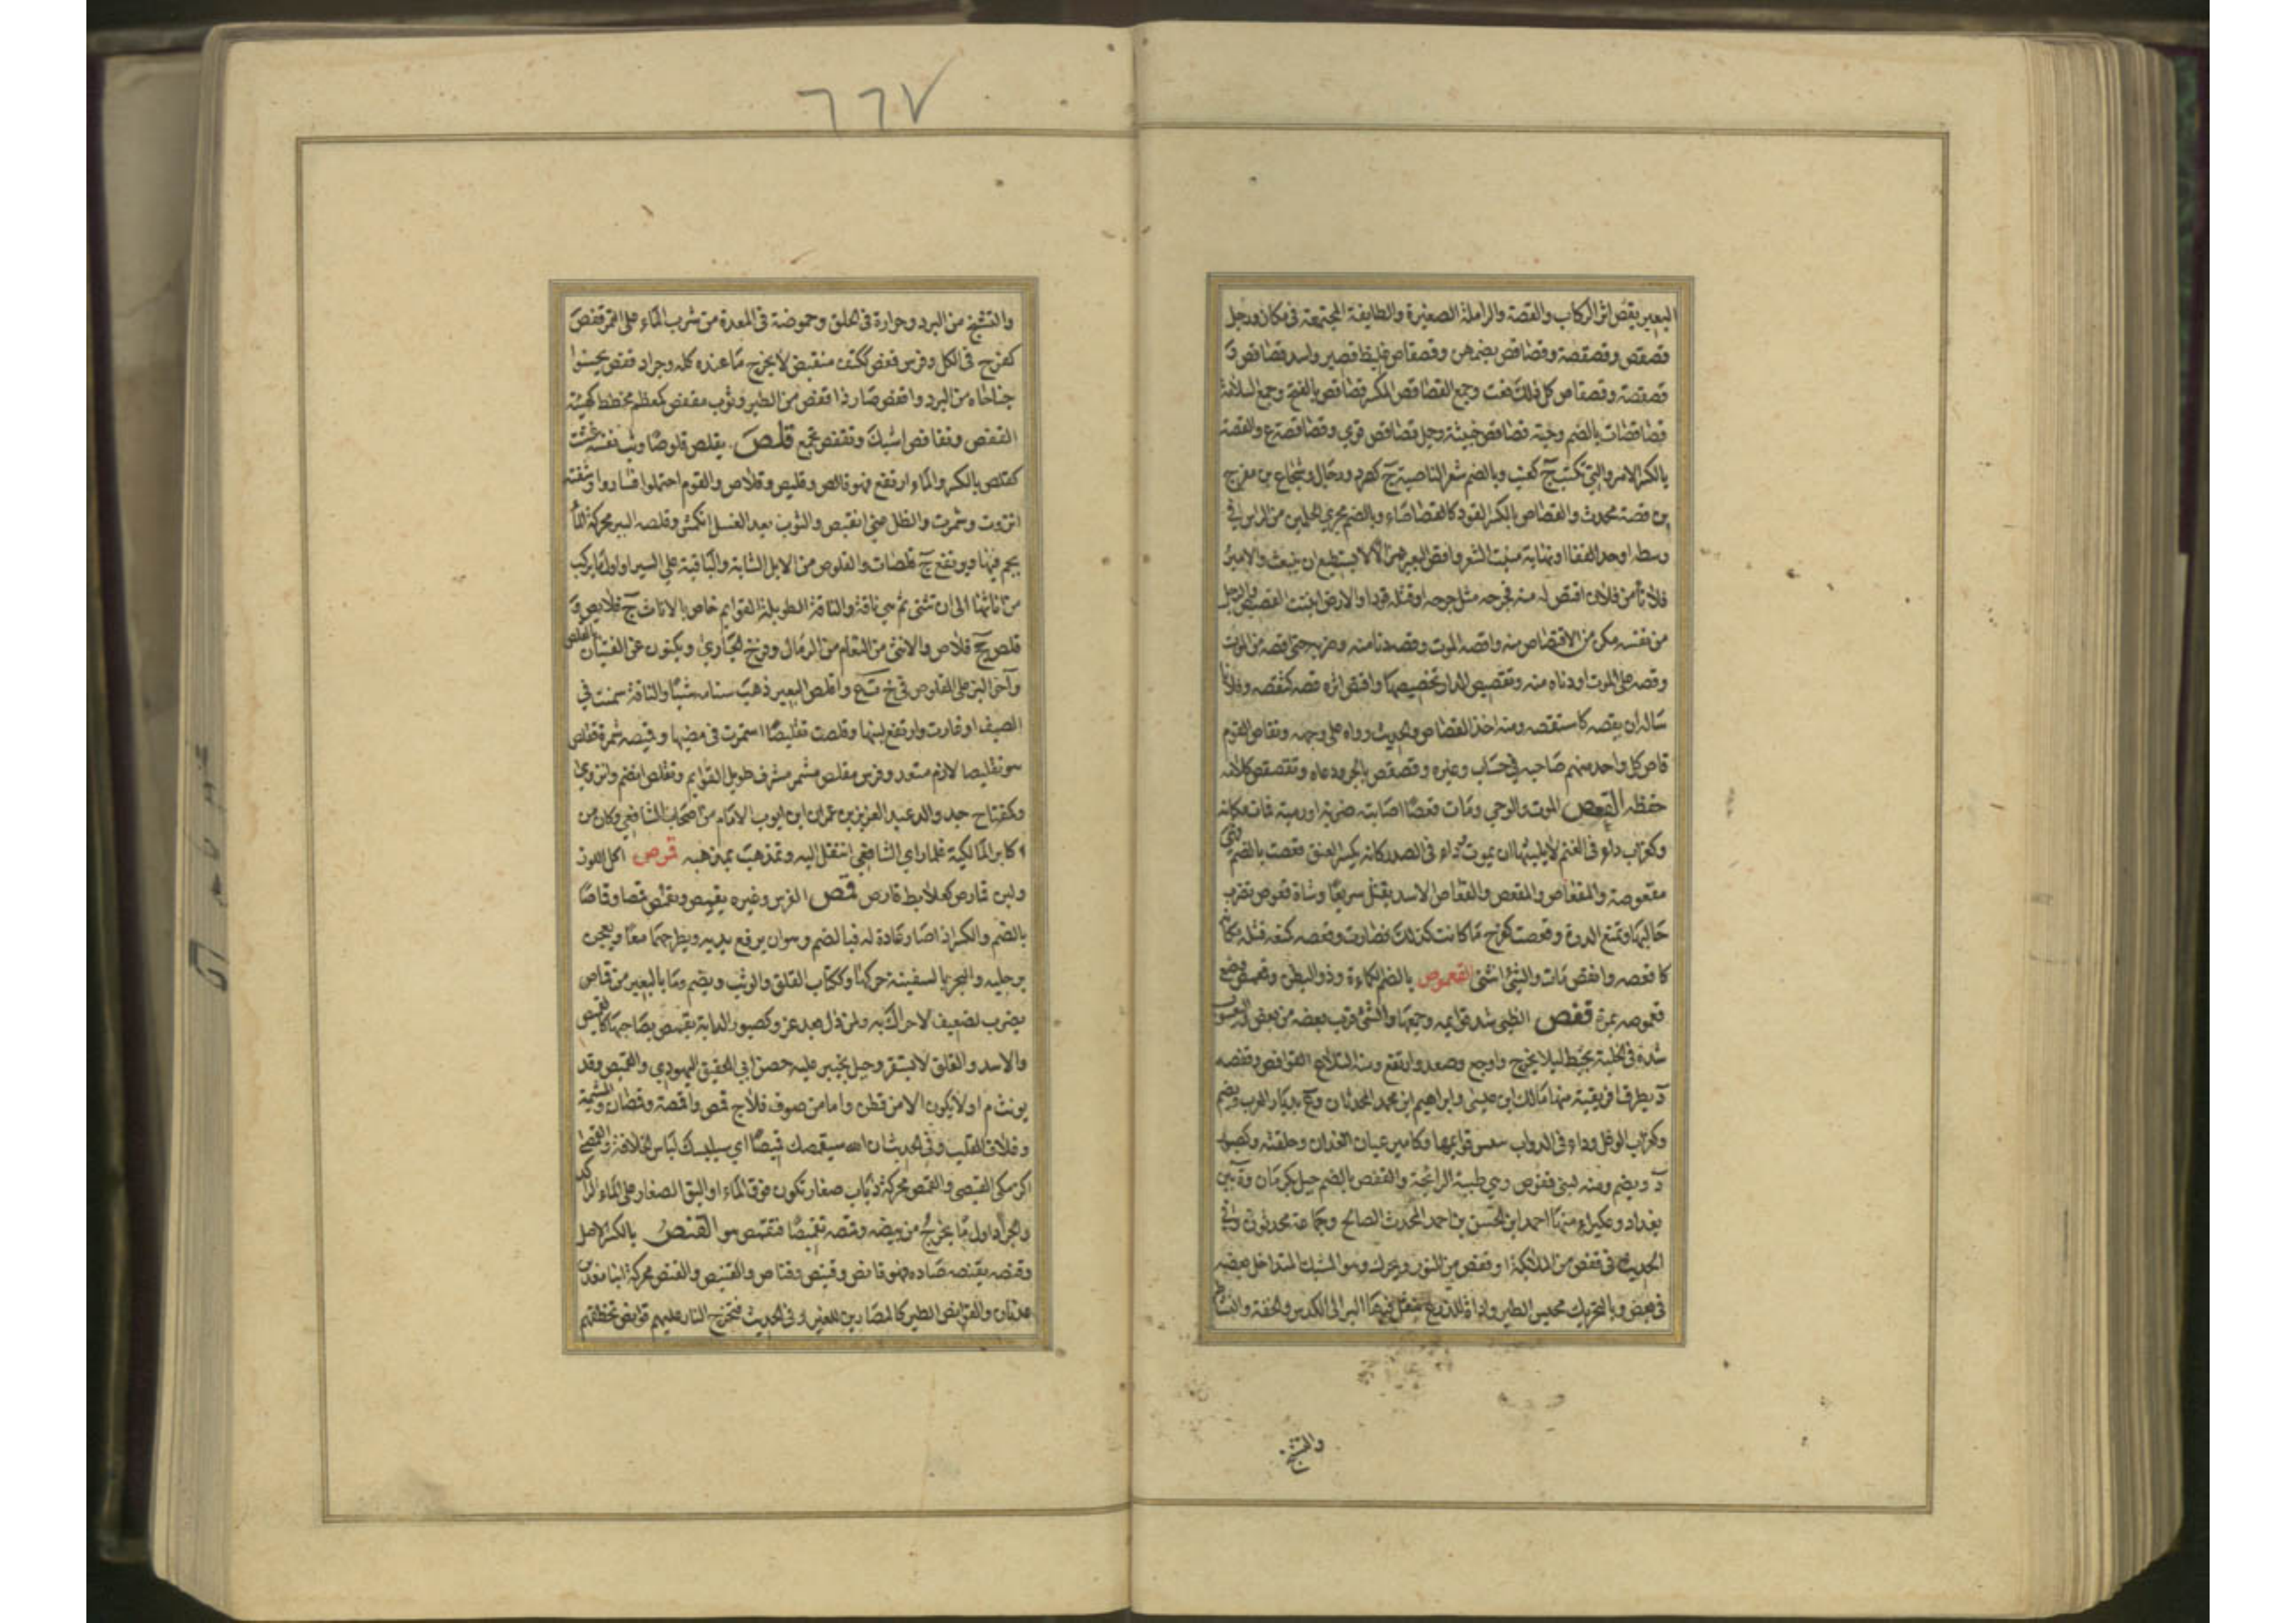 البعير يقص اثر الركاب والقصة والزاملة الصغيرة والطايفة المجتمعة في مكان ورجل
قصقص وقصقصة وقصاقص بضمهن وقصقاص غليظ قصير واسد قصاقص و
قصقصة وقصقاص كل ذلك نعت وجمع القصاقص المكسر قصاقص بالفتح وجمع السلامة
قصاقصات بالضم وحية قصاقص خبيثة وجمل قصاقص قوي وقصاقصة ع والقصة
بالكسر الامر والتي تكتب ج كعنب وبالضم شعر الناصية ج كصرد ورجال وشجاع بن مفرج
بن قصة محدث والقصاص بالكسر القود كالقصاصاء وبالضم مجرى الجلمين من الراس في
وسطه او حد القفا او نهاية منبت الشعر واقص البعير هزالا لا يستطيع ان ينبعث والامير
فلانا من فلان اقتص له منه فجرحه مثل جرحه او قتله قودا والارض انبتت القصيص والرجل
من نفسه مكن من الاقتصاص منه واقصه الموت وقصه دنا منه وضربه حتى اقصه من الموت
وقصه على الموت ادناه منه وتقصيص الدار تجصيصها واقتص اثره قصه كتقصصه وفلانا
ساله ان يقصه كاستقصه ومنه اخذ القصاص والحديث رواه على وجهه وتقاص القوم
قاص كل واحد منهم صاحبه في حساب وغيره وقصقص بالجرو دعاه وتقصقص كلامه
حفظه القعص الموت الوحي ومات قعصا اصابته ضربة او رمية فمات مكانه
وكغراب داء في الغنم لا يلبثها ان يموت وداء في الصدر كانه يكسر العنق قعصت بالضم فهي
مقعوصة والمقعاص والمقعص والقعاص الاسد يقتل سريعا وشاة قعوص تضرب
حالبها وتمنع الدرة وقعصت كفرح ما كانت كذلك فصارت وقعصه كمنعه قتله مكانه
كاقعصه وانقعص مات والشئ انثنى القعموص بالضم الكماءة وذو البطن وقعمص وضع
قعموصه بمرة قفص الظبي شد قوايمه وجمعها والشئ قرب بعضه من بعض
شده في الخلية بخيط ليلا يخرج واوجع وصعد وارتفع ومنه التلاع القوافص وقفصه
د بطرف افريقية منها مالك بن عيسى وابراهيم ابن محمد المحدثان وع بديار العرب ويضم
وكغراب الوعل وداء في الدواب ييبس قوايمها وكامير عيان الفدان وحلقته وكصبور
د ويضم ومنه لبنى قفوص وهي طيبة الرائحة والقفص بالضم جبل بكرمان وة بين
بغداد وعكبراء منها احمد ابن الحسن بن احمد المحدث الصالح وجماعة محدثون وفي
الحديث في قفص من الملائكة او قفص من النور ويحرك وهو المشبك المتداخل بعضه
في بعض وبالتحريك محبس الطير واداة للزرع ينقل فيها البر الى الكدس والخفة والنشاط
والتشنج
٦٦٧
والتشنج من البرد وحرارة في الحلق وحموضة في المعدة من شرب الماء على التمر قفص
كفرح في الكل وفرس قفص ككتف منقبض لا يخرج ما عنده كله وجراد قفص يحسوا
جناحاه من البرد واقفص صار ذا قفص من الطير وثوب مقفص كمعظم مخطط كهيئة
القفص وتقافص اشبك وتقفص تجمع قلص يقلص قلوصا وثب ونفسه غثت
كقلص بالكسر والماء ارتفع فهو قالص وقليص وقلاص والقوم احتملوا فساروا وشفته
انزوت وشمرت والظل عني انقبض والثوب بعد الغسل انكمش وقلصة البير محركة الماء
يجم فيها ويرتفع ج قلصات والقلوص من الابل الشابة والباقية على السير او اول ما يركب
من اناثها الى ان تثني ثم هي ناقة والناقة الطويلة القوايم خاص بالاناث ج قلايص و
قلص جج قلاص والانثى من النعام من الرئال وفرخ الحبارى ويكنون عن الفتيات بالقلص
وآخر البز على القلوص في خ ت ع واقلص البعير ذهب سنامه شيا والناقة سمنت في
الصيف او غارت وارتفع لبنها وقلصت تقليصا استمرت في مضيها وقميصه شمره فقلص
هو تقليصا لازم متعد وفرس مقلص مشمر مشرف طويل القوايم وتقلص انضم وانزوى
وكمفتاح جد والد عبد العزيز بن عمران ابن ايوب الامام من اصحاب الشافعي وكان من
اكابر المالكية فلما راى الشافعي انتقل اليه وتمذهب بمذهبه قرص اكل اللوز
ولبن قمارص كعلابط قارص قمص الفرس وغيره يقمص ويقمص قمصا وقماصا
بالضم والكسر اذا صار عادة له فبالضم وهو ان يرفع يديه ويطرحهما معا ويعجن
برجليه والبحر بالسفينة حركها وككتاب القلق والوثب ويضم وما بالبعير من قماص
يضرب لضعيف لا حراك به ولمن ذل بعد عز وكصبور الدابة يقمص بصاحبها كالقميص
والاسد والقلق لا يستقر وجبل بخيبر عليه حصن ابي الحقيق اليهودي والقميص وقد
يونث م او لا يكون الا من قطن واما من صوف فلا ج قمص واقمصة وقمصان والمشيمة
وغلاف القلب وفي الحديث ان الله سيقمصك قميصا اي سيلبسك لباس الخلافة والقمصى
كزمكى القبصى والقمص محركة ذباب صغار تكون فوق الماء او البق الصغار على الماء الراكد
والجراد اول ما يخرج من بيضه وقمصه تقميصا فتقمص هو القنص بالكسر الاصل
وقنصه يقنصه صاده فهو قانص وقنيص وقناص والقنيص والقنص محركة ابنا معد بن
عدنان والقوانص للطير كالمصارين للغير وفي الحديث فتخرج النار عليهم قوانص تخطفهم